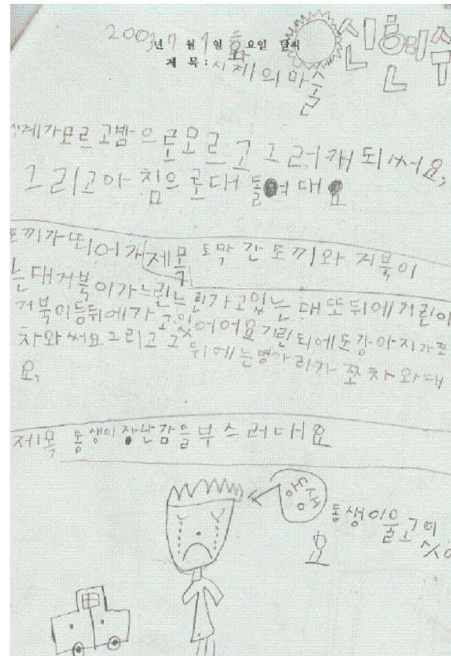 2003년 7월 1일 화요일 날씨
제목: 시계의 마술
신흔민수
시계가모르고밤으로모르고그러캐되써요,
그리고아침으로대돌여대요
토끼가띠어가
제목 토막간토끼와 지북이
는대거북이가느린느린가고있는대또뒤에기린이
거북이등뒤에가고있어어요기린되에도강아지가쪼
차와써요그리고그뒤에는병아리가쪼차와대
요,
제목 동생이장난감을부스러대요
동생
동생이울고이
씻어
요